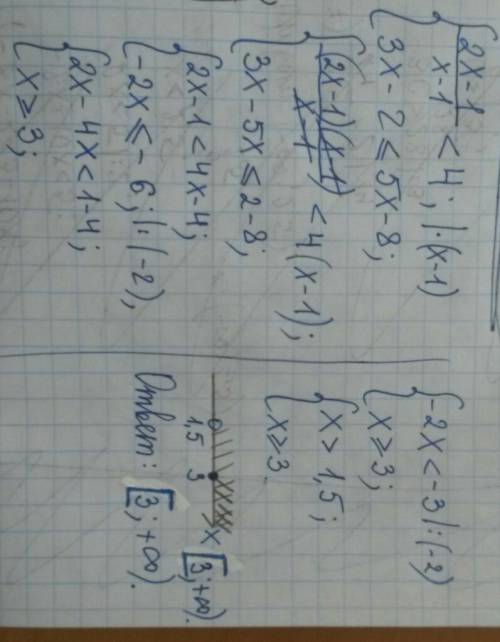 { (2x-1)/(x-1) < 4; |·(x-1)
{ 3x-2 ≤ 5x-8;
{ (2x-1)(x-1)/(x-1) < 4(x-1);
{ 3x-5x ≤ 2-8;
{ 2x-1 < 4x-4;
{ -2x ≤ -6; |:(-2),
{ 2x-4x < 1-4;
{ x ≥ 3;
{ -2x < -3 |:(-2)
{ x ≥ 3;
{ x > 1,5;
{ x ≥ 3.
1,5 3 x [3;+∞).
Ответ: [3;+∞).